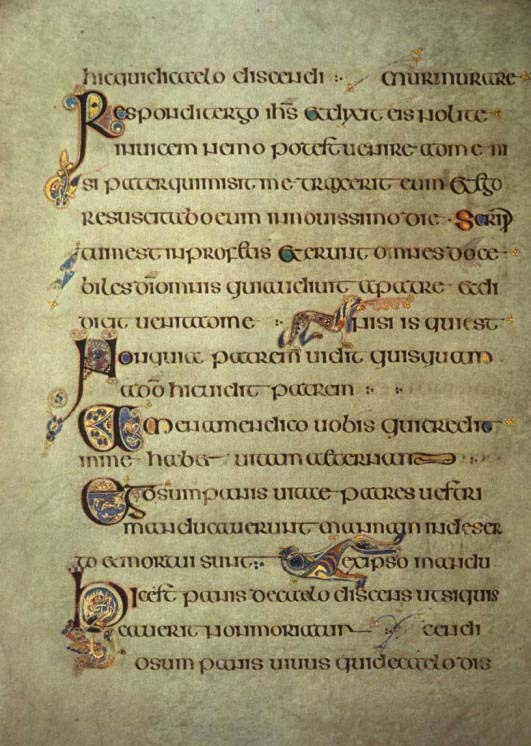 hicquidicaelo discendi murmurare
Respondit ergo ihs et dixit eis nolite
inuicem nemo potest uenire ad me ni
si pater qui misit me traxerit eum et ego
resuscitabo eum in nouissimo die Scrip
tum est in profetis et erunt omnes doce
biles di omnis qui audiuit a patre et di
dicit uenit ad me nisi is qui est
Non quia patrem uidit quisquam
a do hic uidit patrem
Amen amen dico uobis qui credit
in me habet uitam aeternam
Ego sum panis uitae patres uestri
manducauerunt manna in deser
to et mortui sunt ex ipso mandu
Hic est panis de caelo discens ut si quis
cauerit non moriatur cendi
Ego sum panis uiuus qui de caelo dis